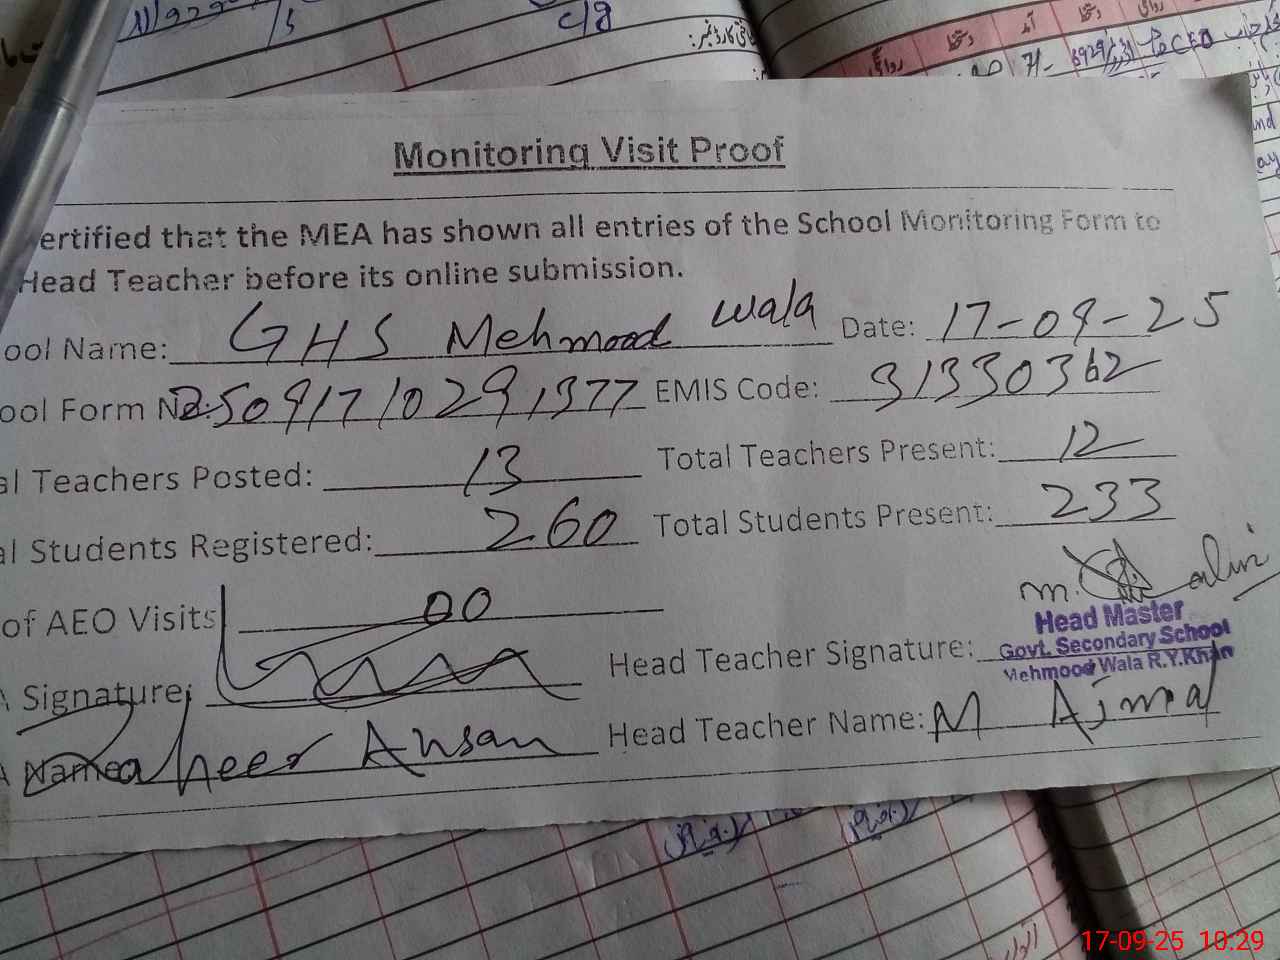 c/8
آمد
دستخط
روانگی
Monitoring Visit Proof
ertified that the MEA has shown all entries of the School Monitoring Form to
Head Teacher before its online submission.
ool Name: GHS Mehmood wala Date: 17-09-25
ool Form No: 25091710291377 EMIS Code: 31330362
al Teachers Posted: 13 Total Teachers Present: 12
al Students Registered: 260 Total Students Present: 233
of AEO Visits 00
Head Master
Govt. Secondary School
Mehmood Wala R.Y.Khan
A Signature: Head Teacher Signature:
A Name Zaheer Ahsan Head Teacher Name: M Ajmal
17-09-25 10:29